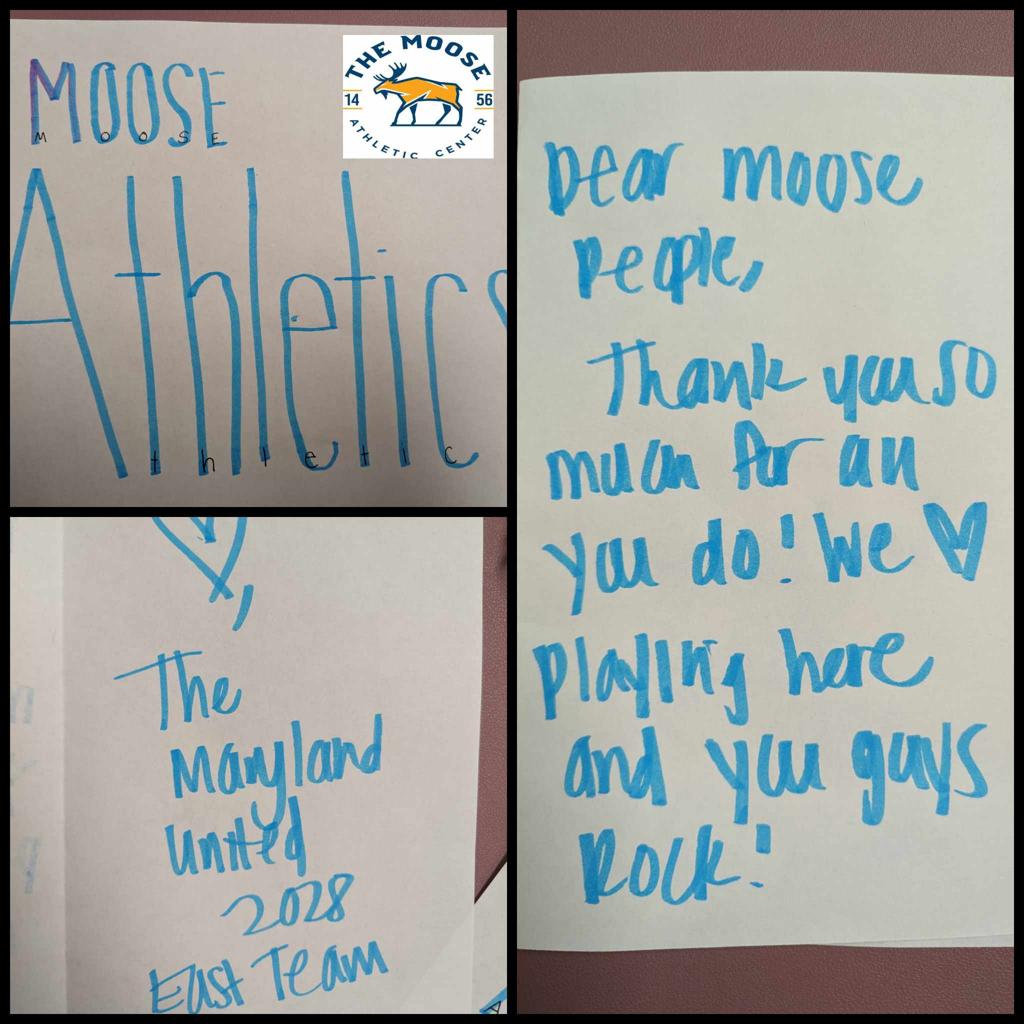 MOOSE
M O O S E
THE MOOSE
14 56
ATHLETIC CENTER
Athletics
t h l e t i c
Dear moose
people,
Thank you so
much for all
you do! We ♥
playing here
and you guys
Rock!
♥,
The
Maryland
United
2028
East Team